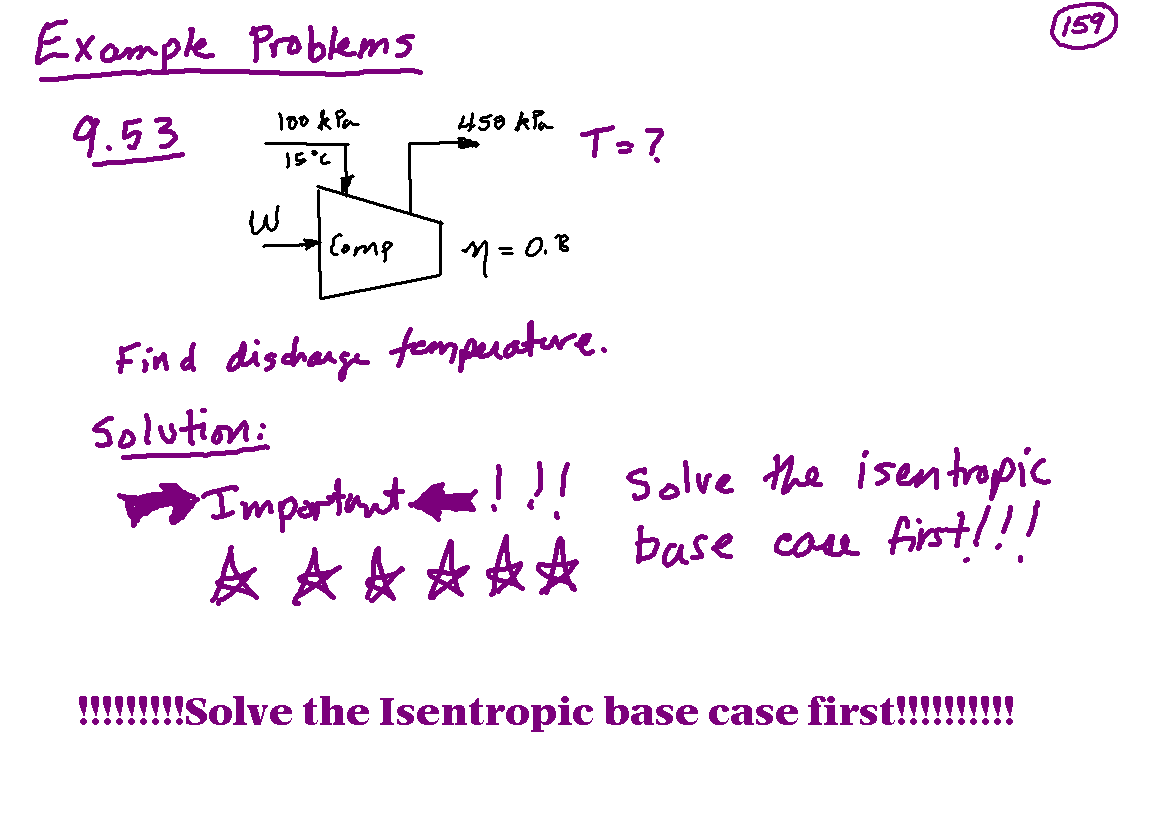 Example Problems
159
9.53
100 kPa
15°C
450 kPa
T=?
W
Comp
η = 0.8
Find discharge temperature.
Solution:
Important !!! Solve the isentropic
base case first!!!
!!!!!!!!!Solve the Isentropic base case first!!!!!!!!!!